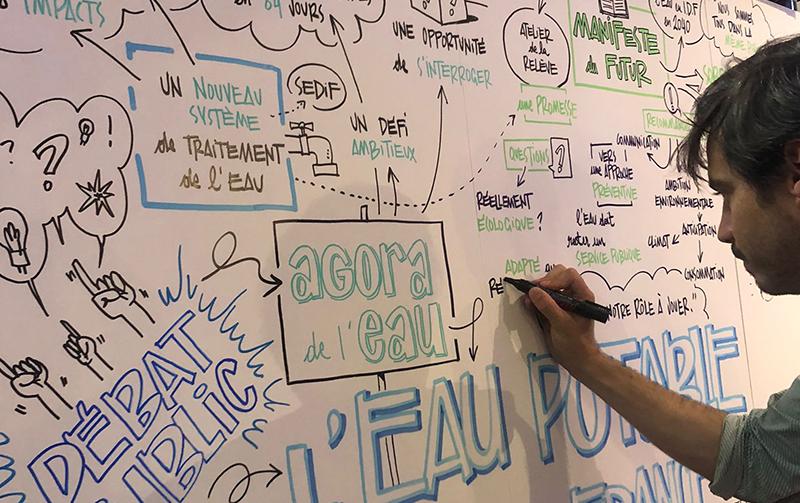 IMPACTS
EN
64 JOURS
UNE OPPORTUNITÉ
de S'INTERROGER
ATELIER
de la
RELÈVE
MANIFESTE
du FUTUR
en IDF
en 2040
NOUS SOMMES
TOUS DANS LA
UN NOUVEAU
SYSTÈME
de TRAITEMENT
de L'EAU
SEDIF
UN DEFI
AMBITIEUX
une PROMESSE
QUESTIONS
?
VERS
une APPROCHE
PRÉVENTIVE
COMMUNICATION
RÉELLEMENT
ÉCOLOGIQUE ?
L'EAU doit
rester un
SERVICE PUBLIQUE
AMBITION
ENVIRONNEMENTALE
ANTICIPATION
CLIMAT
CONSOMMATION
ADAPTÉ
RÉ
NOTRE RÔLE À JOUER."
agora
de l'eau
DÉBAT
PUBLIC
L'EAU POTABLE